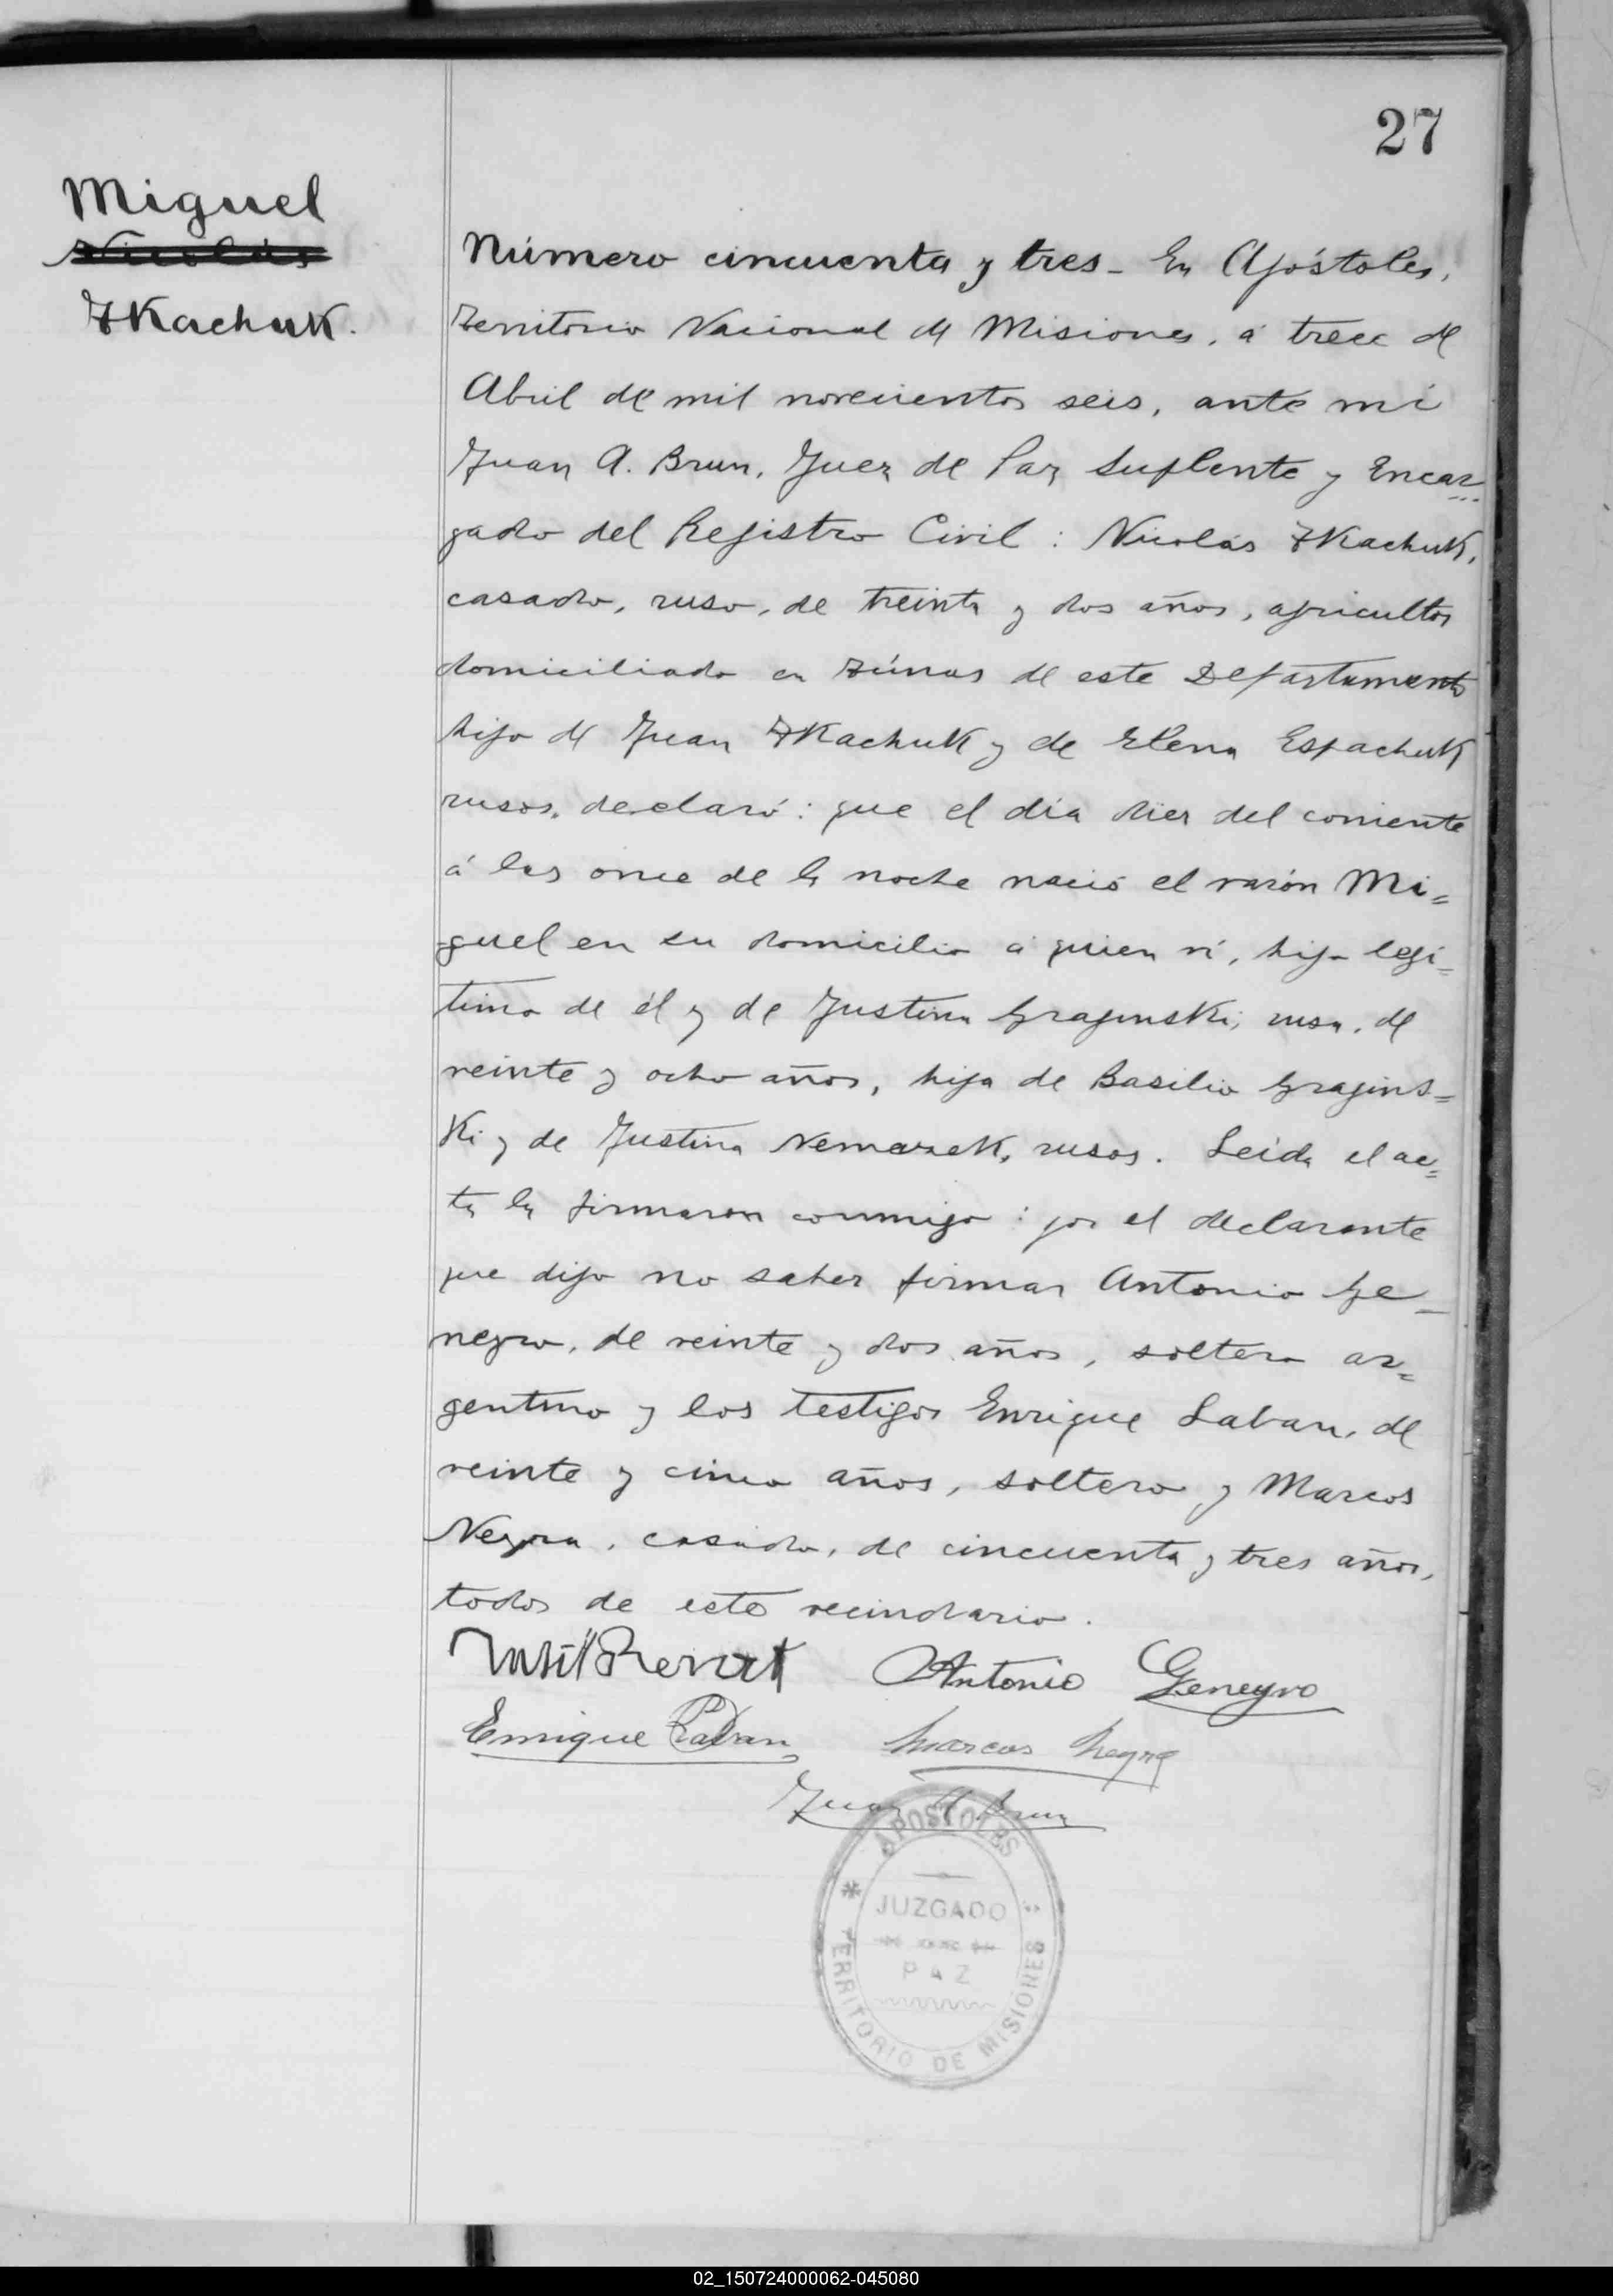 27
Miguel
Nicolás
TKachuK.
Número cincuenta y tres - En Apóstoles,
Territorio Nacional de Misiones, á trece de
Abril de mil novecientos seis, ante mí
Juan A. Brun, Juez de Paz Suplente y Encar
gado del Registro Civil : Nicolás TKachuK,
casado, ruso, de treinta y dos años, agricultor
domiciliado en Túnas de este Departamento
hijo de Juan TKachuK y de Elena EspachuK
rusos, declaró : que el día diez del corriente
á las once de la noche nació el varón Mi=
guel en su domicilio á quien ví, hijo legí=
timo de él y de Justina GraginsKi, rusa, de
veinte y ocho años, hija de Basilio Gragins=
Ki y de Justina NemarzeK, rusos. Leida el ac=
ta la firmaron conmigo : por el declarante
que dijo no saber firmar Antonio Ge-
neyro, de veinte y dos años, soltero ar=
gentino y los testigos Enrique Laban, de
veinte y cinco años, soltero y Marcos
Neyra, casado, de cincuenta y tres años,
todos de este vecindario.
Antonio Geneyro
Enrique Marcos Neyra
Juan A Brun
APOSTOLES
JUZGADO
PAZ
TERRITORIO DE MISIONES
02_150724000062-045080